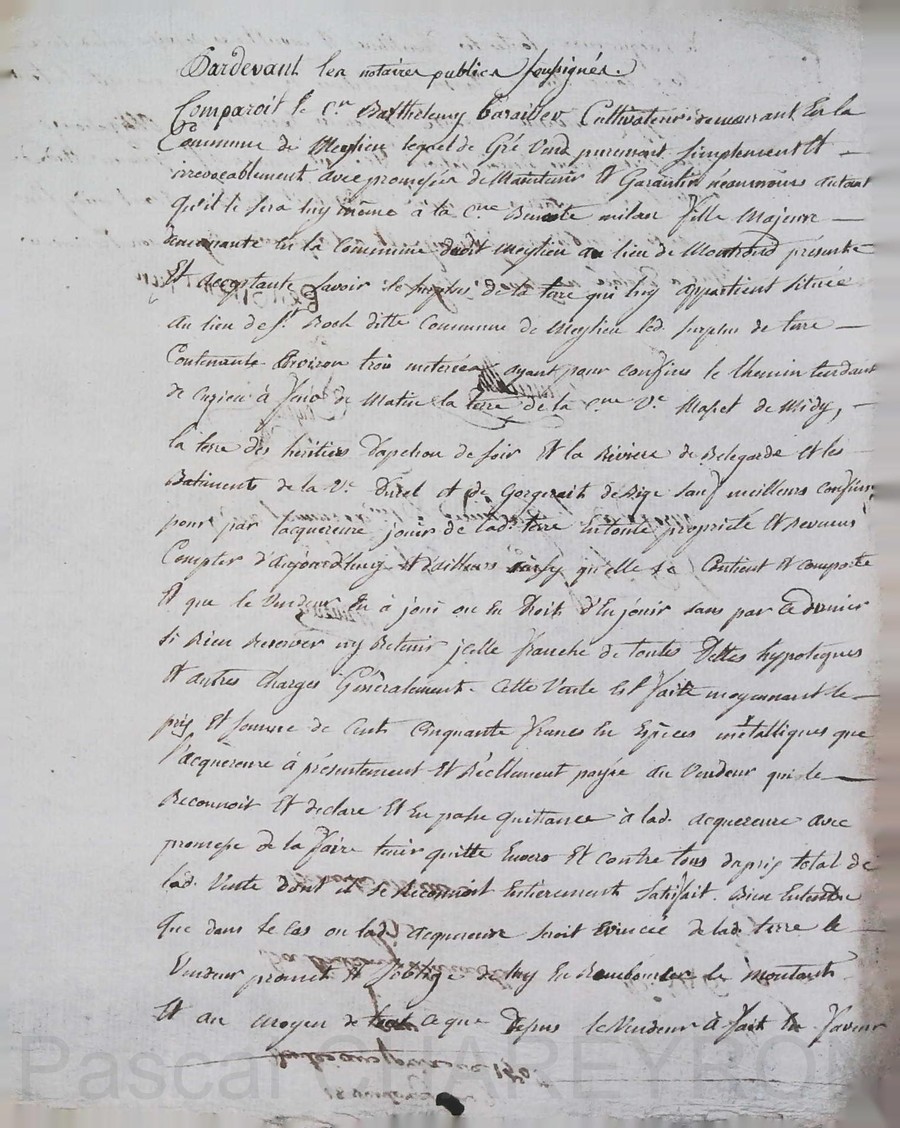 Pardevant les notaires publics soussignés.
Comparoit le C.en Barthelemy Cultivateur demeurant En la
Commune de Meylieu lequel de Gré Vend purement simplement Et
irrevocablement avec promesse de Maintenir Et Garantir néanmoins autant
qu'il le sera luy même à la C.ne Benoite milan fille Majeure
demeurante En la Commune dudit Meylieu au lieu de Montrond présente
Et acceptante Savoir le surplus de la terre qui luy appartient située
au lieu de S.t Roch ditte Commune de Meylieu led. surplus de terre
Contenante Environ trois ayant pour confins le Chemin tendant
de Cuzieu à de Matin la terre de la C.ne V.e Mapet de Midy,
la terre des héritiers Dapchon de soir Et la Riviere de Belegarde Et les
Batiments de la V.e Durel et de de Bize sauf meilleurs confins
pour par lacquereure jouir de lad. terre En toute propriété Et Revenus
Compter d'aujourd'huy Et d'ailleurs ainsy qu'elle se Contient Et comporte
Et que le Vendeur En à joui ou Eu Droits d'En jouir sans par Ce dernier
Si Rien Reserver ny Retenir jcelle franche de toutes Dettes hypoteques
Et autres Charges Généralement. Cette Vente Est faite moyennant le
prix Et somme de Cent Cinquante francs En Espèces métalliques que
l'acquereure à présentement Et Réellement payée au Vendeur qui le
Reconnoit Et declare Et En passe quittance à lad. acquereure avec
promesse de la faire tenir quitte Envers Et contre tous du prix total de
lad. Vente dont il se Reconnoit Entierement Satisfait. Bien Entendu
que dans le cas ou lad. acquereure seroit Evincée de lad. terre le
Vendeur promet Et s'oblige de luy En Rembourser le montant
Et au moyen de ce que Dessus le Vendeur à fait En faveur
Pascal CHAREYRON